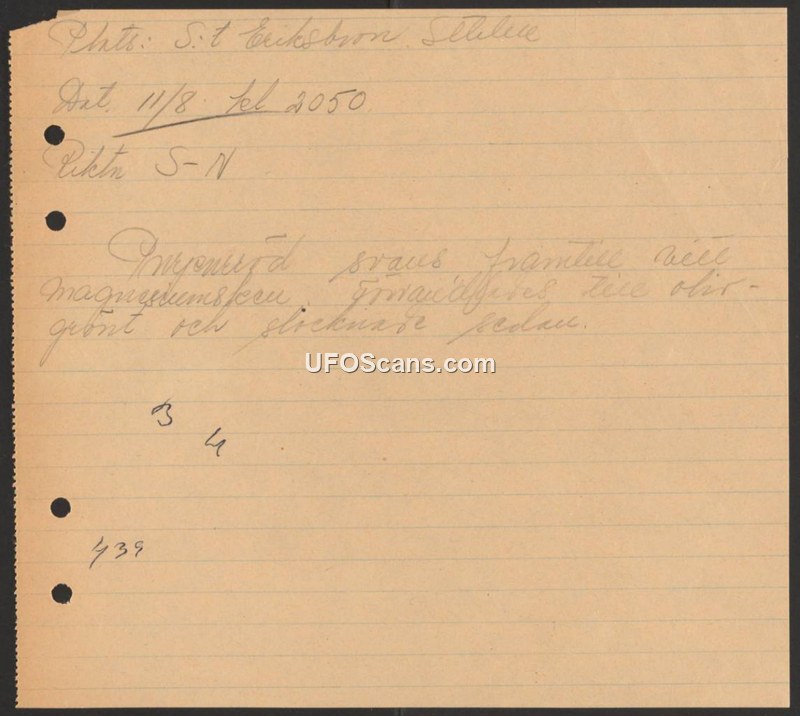 Plats: S:t Eriksbron Sthlm
Dat. 11/8 kl 2050.
Riktn S-N
Purpurröd svans framtill vitt
magnesiumsken. Förvandlades till oliv-
grönt och slocknade sedan.
UFOScans.com
3
4
439